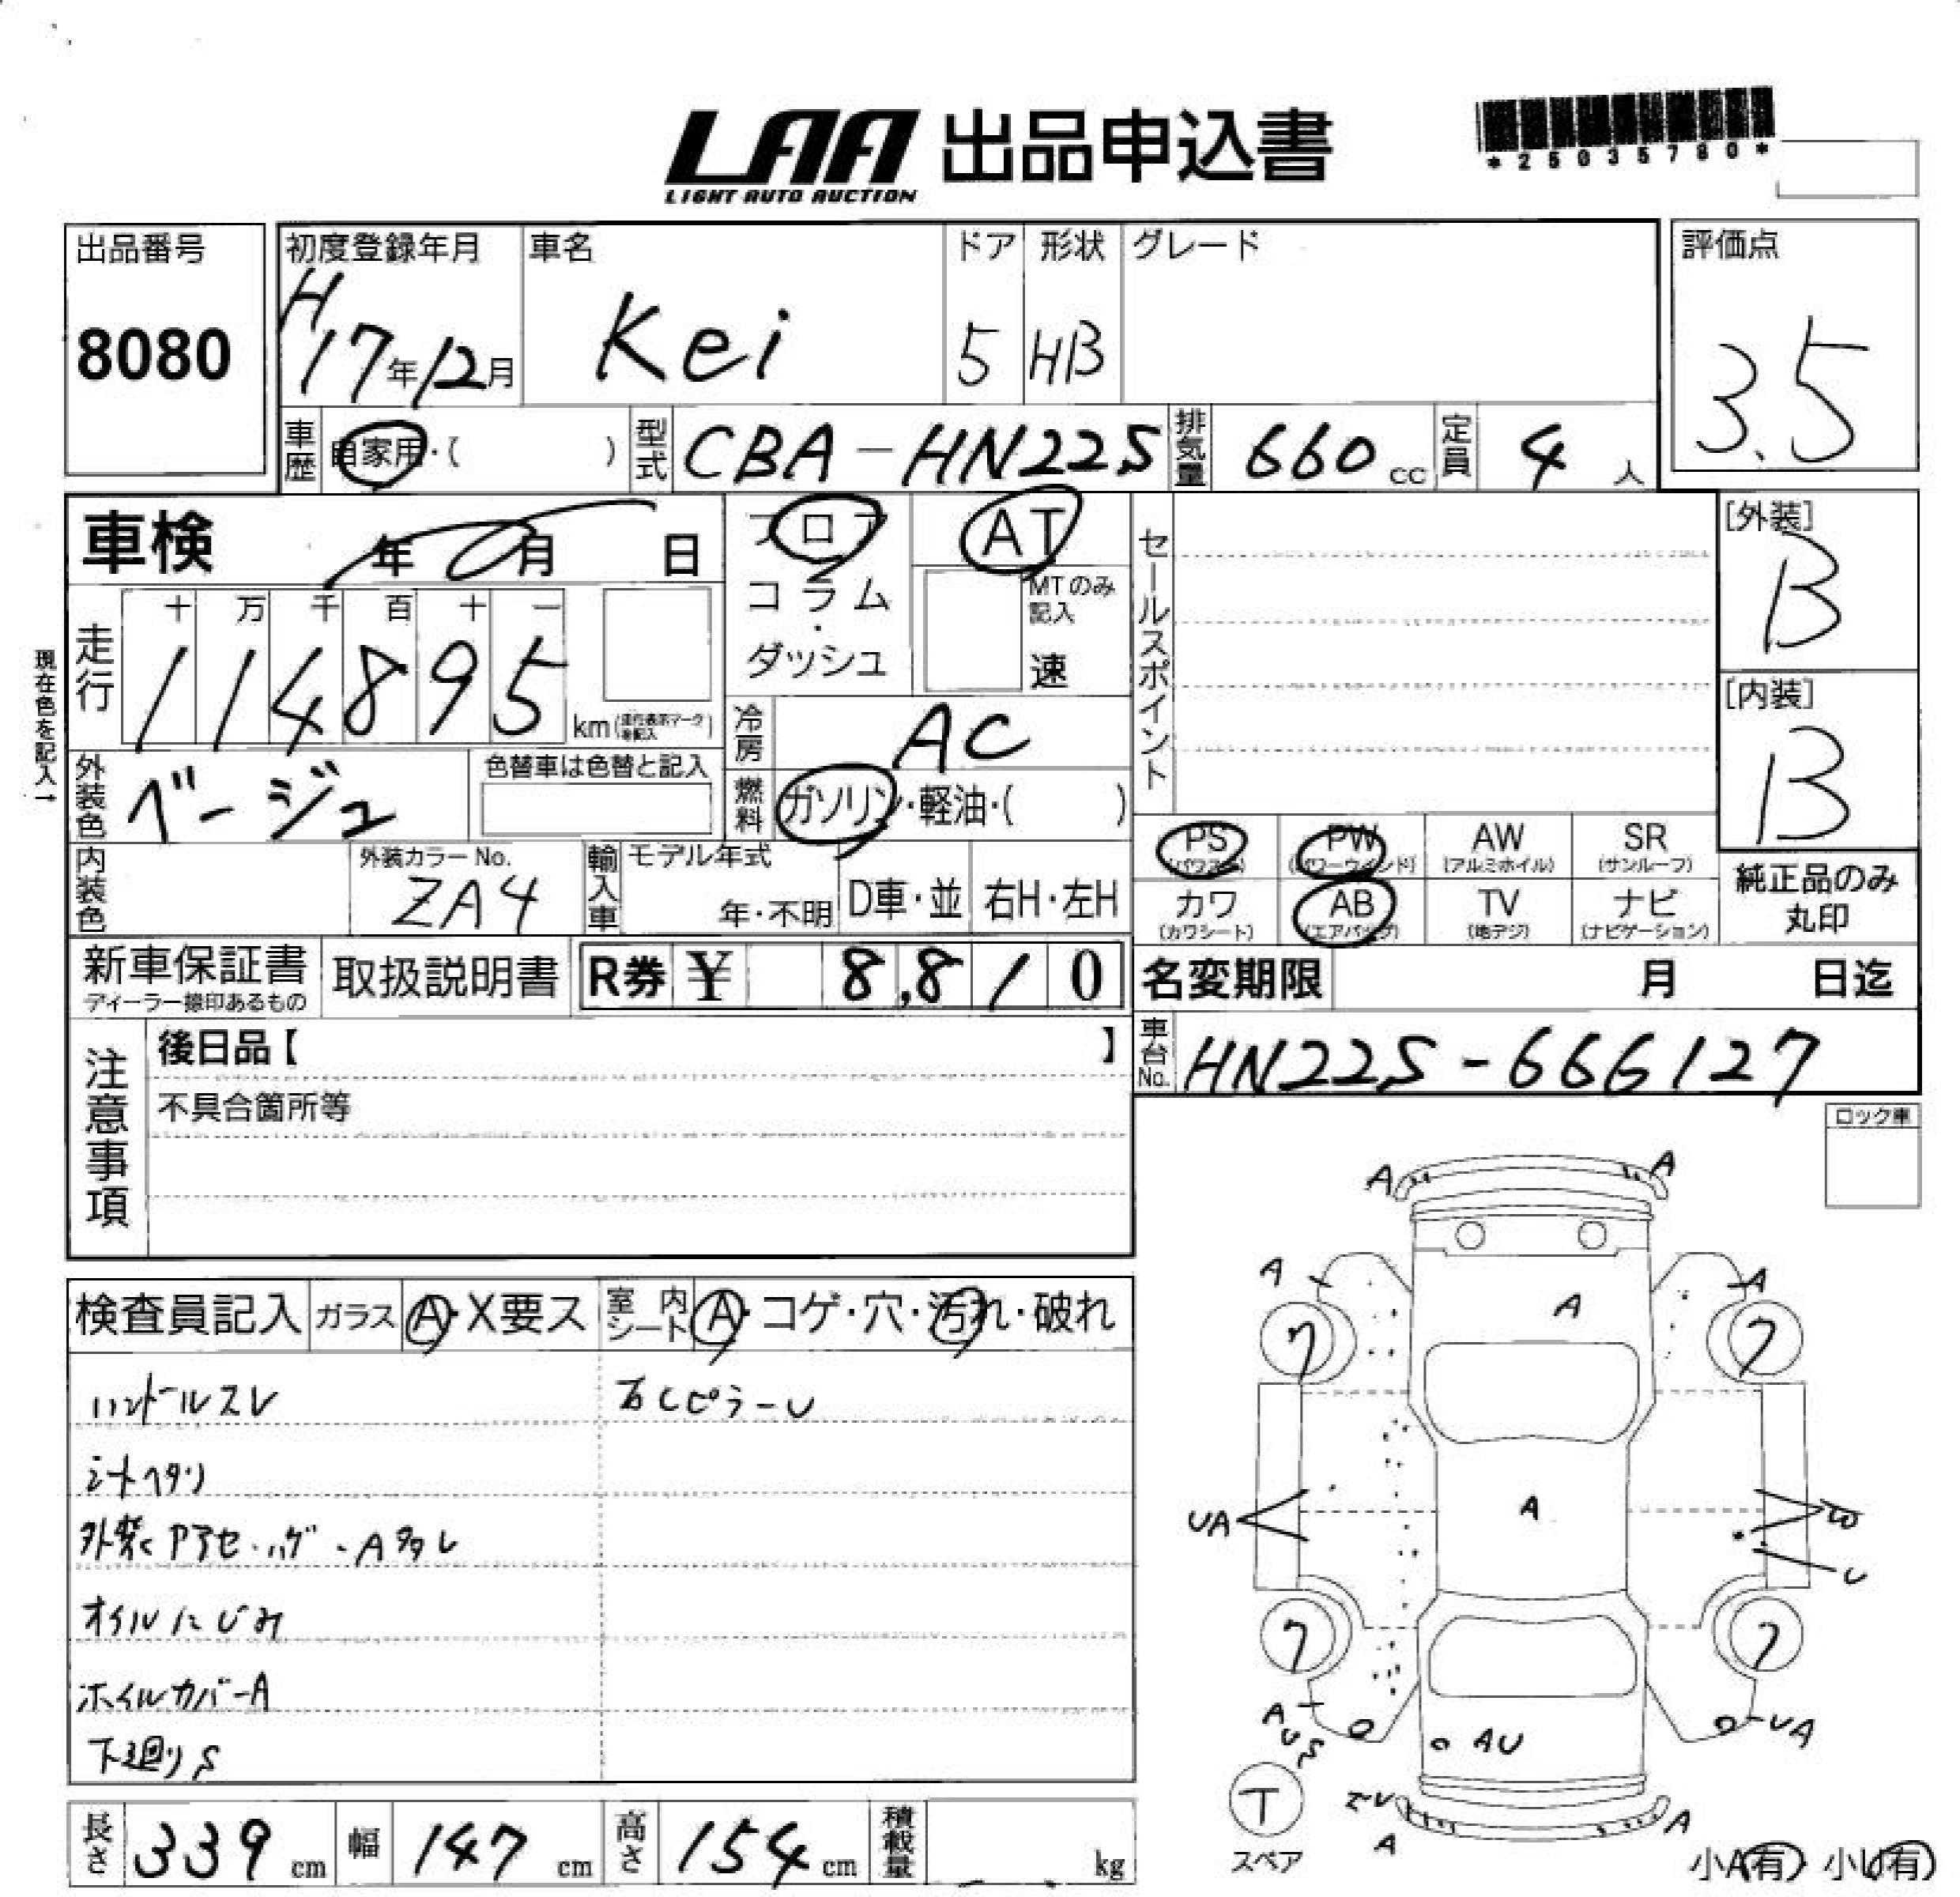 LAA 出品申込書
LIGHT AUTO AUCTION
*25035780*
出品番号 初度登録年月 車名 ドア 形状 グレード 評価点
8080 H17年12月 Kei 5 HB 3.5
車歴 自家用・( ) 型式 CBA-HN22S 排気量 660 cc 定員 4 人
車検 年 月 日 フロア AT
[外装]
B
コラム・ダッシュ MTのみ記入 速
セールスポイント
十 万 千 百 十 一
走行 114895 km (走行表示マークを記入)
現在色を記入→
[内装]
B
冷房 AC
外装色 ベージュ 色替車は色替と記入 燃料 ガソリン・軽油・( )
PS (パワステ) PW (パワーウインド) AW (アルミホイル) SR (サンルーフ)
内装色 外装カラーNo. ZA4 輸入車 モデル年式 年・不明 D車・並 右H・左H
カワ (カワシート) AB (エアバック) TV (地デジ) ナビ (ナビゲーション)
純正品のみ
丸印
新車保証書 取扱説明書 R券 ¥ 8,810 名変期限 月 日迄
ディーラー捺印あるもの
注意事項 後日品【 】 車台No. HN22S-666127
不具合箇所等
ロック車
検査員記入 ガラス A・X要ス 室内シート A・コゲ・穴・汚れ・破れ
ハンドルスレ 右CピラーU
シートヘタリ
オイルにじみ
ホイルカバーA
下廻りS
A A
A A
A
7 7
UA A
U
7 7
A
U
S
AU UA
T
スペア
A A
小A(有) 小U(有)
長さ 339 cm 幅 147 cm 高さ 154 cm 積載量 kg